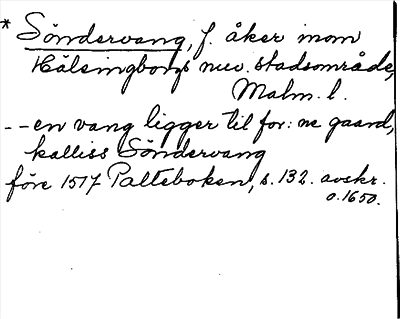 * Söndervang, f. åker inom
Hälsingborgs nuv. stadsområde,
Malm. l.
-- en vang ligger til for: ne gaard,
kalliss Söndervang
före 1517 Palteboken, s. 132. avskr.
o. 1650.